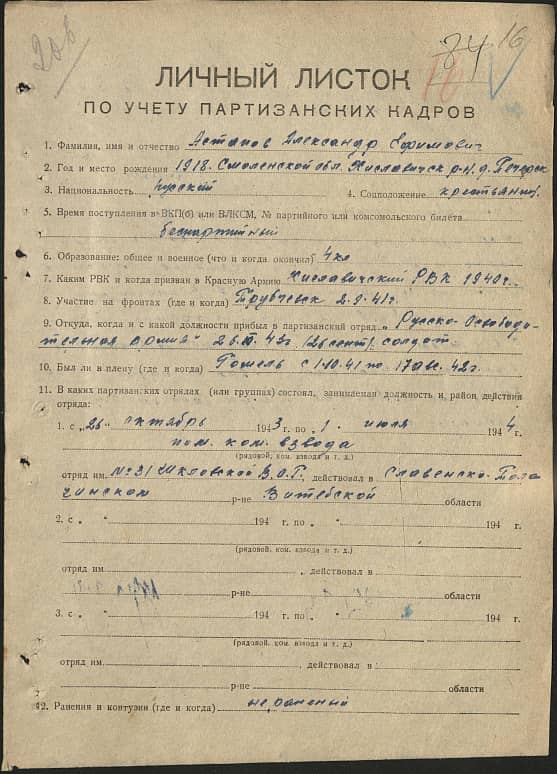 208
24 16
ЛИЧНЫЙ ЛИСТОК
ПО УЧЕТУ ПАРТИЗАНСКИХ КАДРОВ
1. Фамилия, имя и отчество Астапов Александр Ефимович
2. Год и место рождения 1918. Смоленской обл. Хиславичск р-н. д. Печерск
3. Национальность русский 4. Соцположение крестьянин
5. Время поступления в ВКП(б) или ВЛКСМ, № партийного или комсомольского билета
беспартийный
6. Образование: общее и военное (что и когда окончил) 4 кл
7. Каким РВК и когда призван в Красную Армию Хиславичский РВК 1940 г.
8. Участие на фронтах (где и когда) Трубчевск 2.9.41г.
9. Откуда, когда и с какой должности прибыл в партизанский отряд „Русско-Освободи-
тельная армия" 26. 43г. (26 сент). солдат
10. Был ли в плену (где и когда) Гомель с 1.10.41 по 17 авг. 42г.
11. В каких партизанских отрядах (или группах) состоял, занимаемая должность и район действия
отряда:
1. с „26" октябрь 1943 г. по „1" июля 1944 г.
пом. ком. взвода
(рядовой, ком. взвода и т. д.)
отряд им. №31 Шкловской В.О.Г. действовал в Славенско-Тола
чинском р-не Витебской области
2. с „ " 194 г. по „ " 194 г.
(рядовой, ком. взвода и т. д.)
отряд им , действовал в
р-не области
3. с „ " 194 г. по „ " 194 г.
(рядовой, ком. взвода и т. д.)
отряд им. , действовал в
р-не области
12. Ранения и контузии (где и когда) не раненый